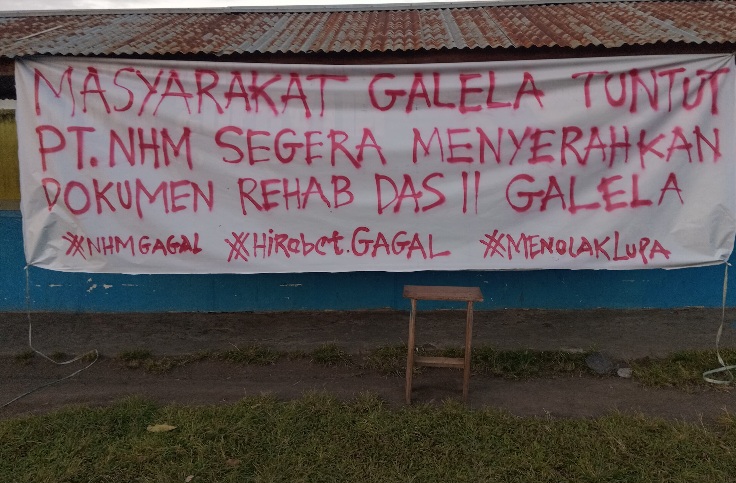 MASYARAKAT GALELA TUNTUT
PT. NHM SEGERA MENYERAHKAN
DOKUMEN REHAB DAS II GALELA
#NHMGAGAL #Hirabet.GAGAL #MENOLAKLUPA